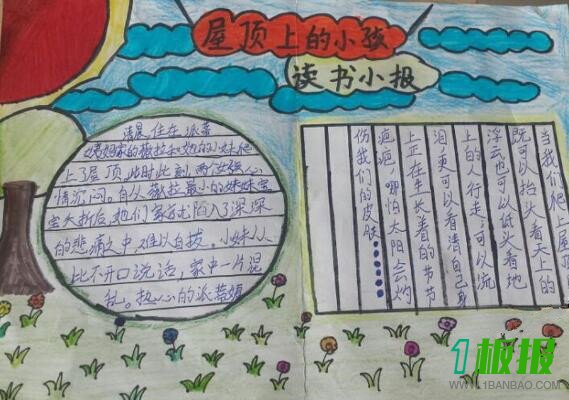 屋顶上的小孩
读书小报
清晨住在派蒂
姨妈家的薇拉和她的小妹爬
上了屋顶,此时此刻,两个女孩心
情沉闷。自从薇拉最小的妹妹宝
宝夭折后,她们家有如陷入了深深
的悲痛之中,难以自拔。小妹从
此不开口说话,家中一片混
乱。热心的派蒂姨
当我们爬上屋顶的
既可以抬头看天上的
浮云也可以低头看地
上的人行走,可以流
泪,更可以看清自己身
上正在生长着的节节
疤疤,哪怕太阳会灼
伤我们的皮肤……
1板报
WWW.1BANBAO.COM